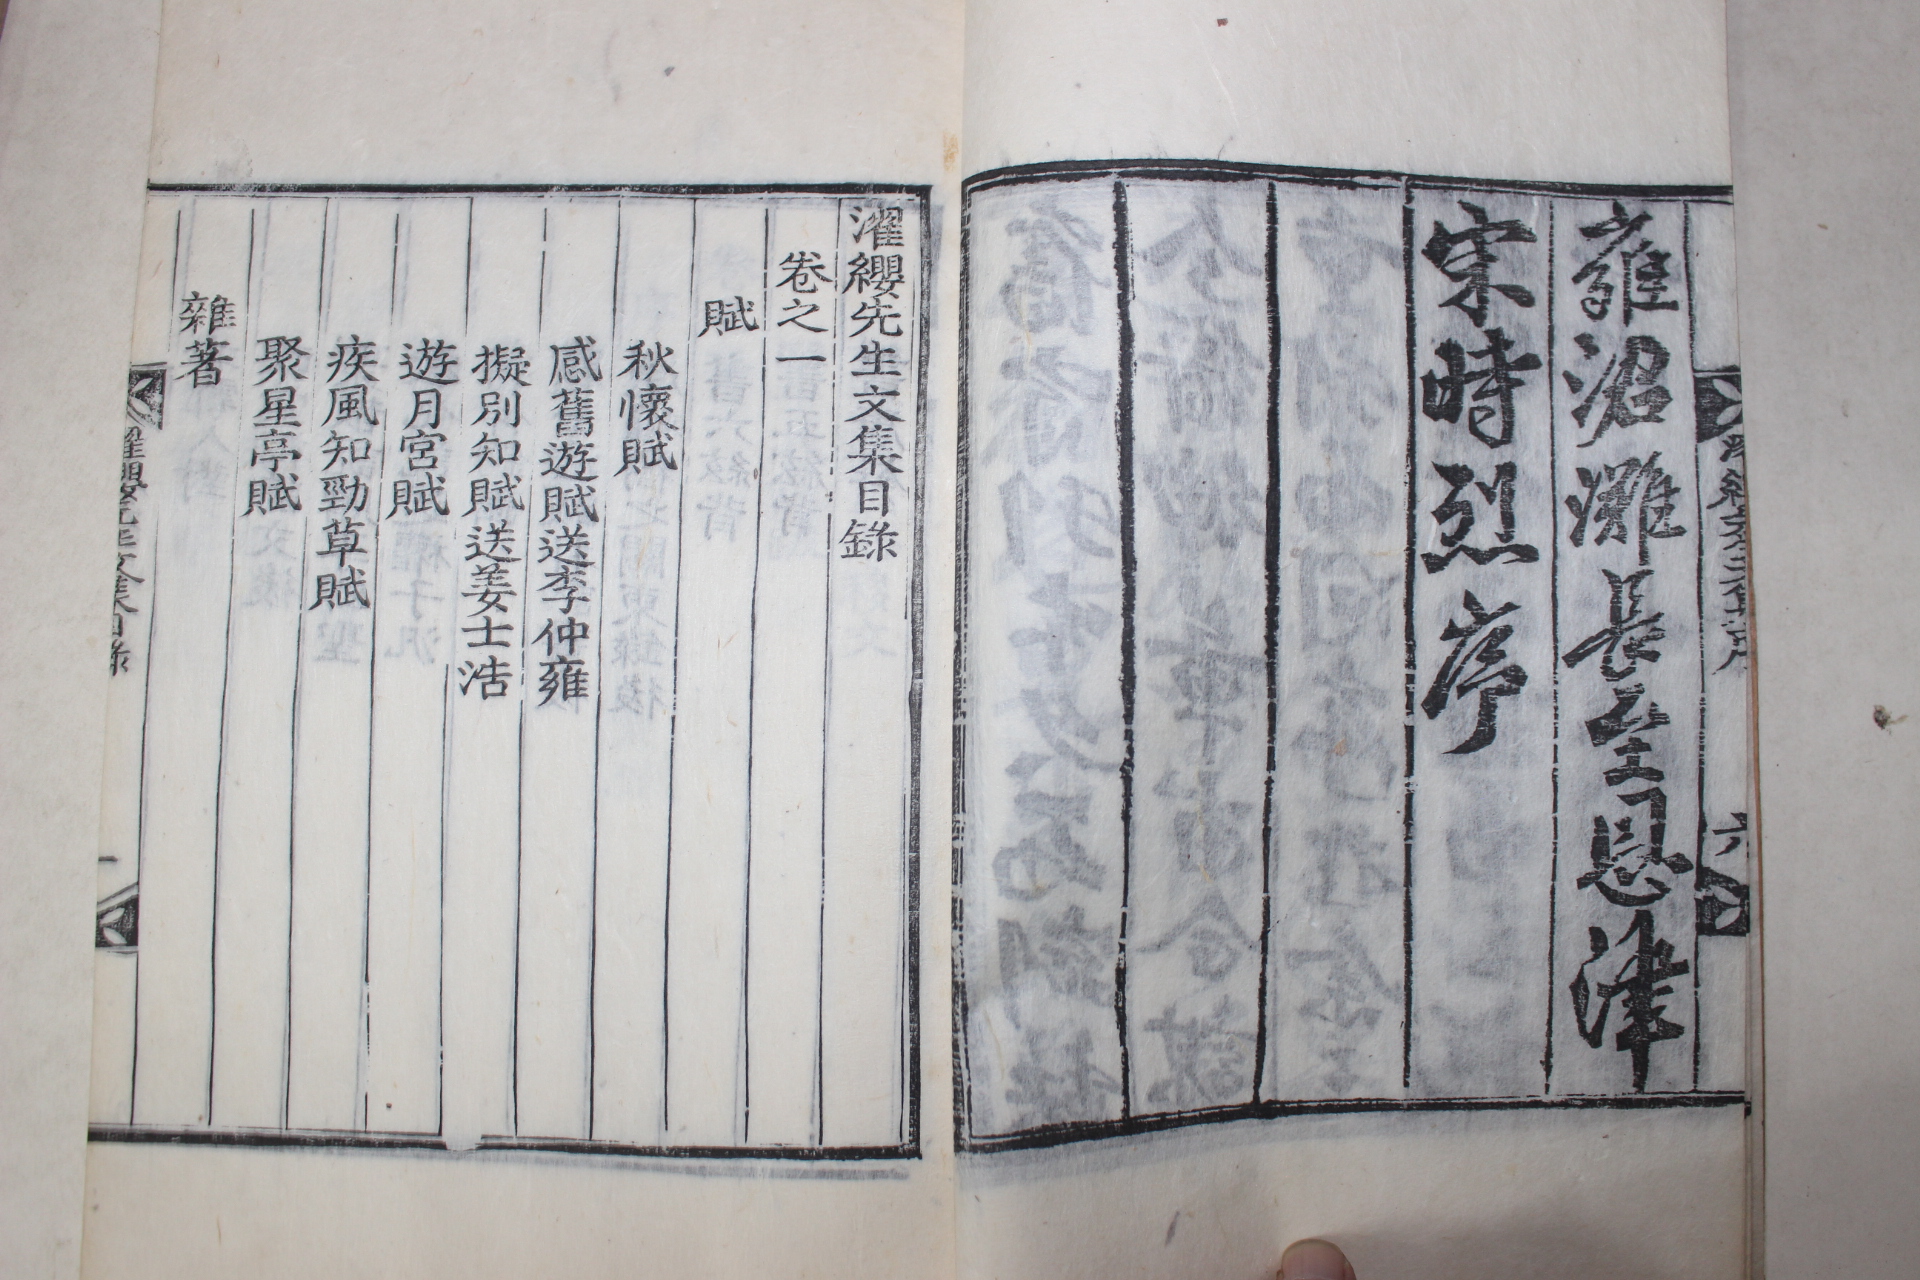 雍涒灘長至恩津
宋時烈序
六
濯纓先生文集目錄
卷之一
賦
秋懷賦
感舊遊賦送李仲雍
擬別知賦送姜士浩
遊月宮賦
疾風知勁草賦
聚星亭賦
雜著
濯纓先生文集目錄
一